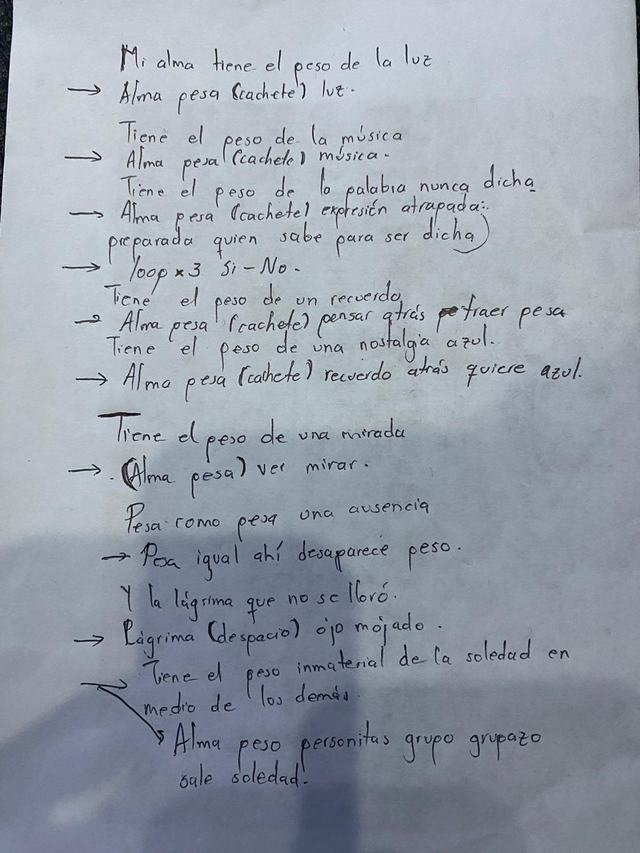 Mi alma tiene el peso de la luz
→ Alma pesa (cachete) luz.
Tiene el peso de la música
→ Alma pesa (cachete) música.
Tiene el peso de la palabra nunca dicha
→ Alma pesa (cachete) expresión atrapada:.
preparada quien sabe para ser dicha)
→ loop x 3 Si - No.
Tiene el peso de un recuerdo
→ Alma pesa (cachete) pensar atrás traer pesa
Tiene el peso de una nostalgia azul.
→ Alma pesa (cachete) recuerdo atrás quiere azul.
Tiene el peso de una mirada
→ . (Alma pesa) ver mirar.
Pesa como pesa una ausencia
→ Pesa igual ahí desaparece peso.
Y la lágrima que no se lloró.
→ Lágrima (despacio) ojo mojado.
→ Tiene el peso inmaterial de la soledad en
medio de los demás.
→ Alma peso personitas grupo grupazo
sale soledad.